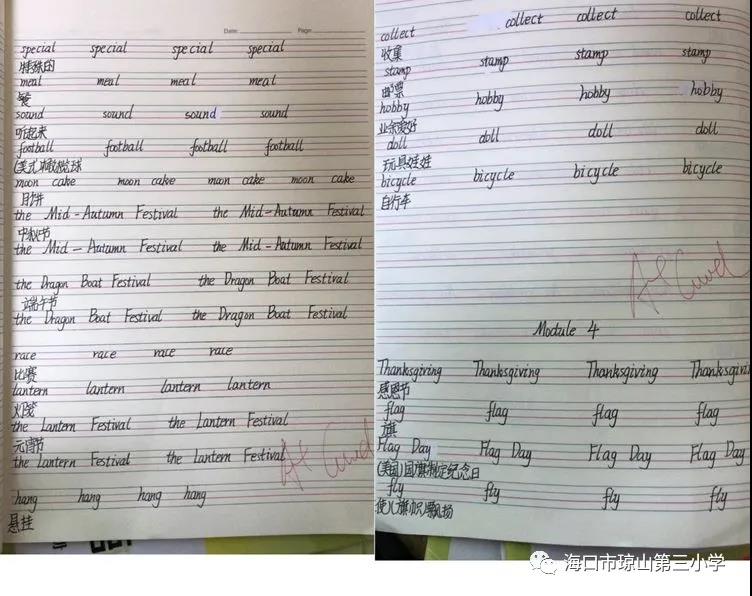 Date: Page:
special special special special
特殊的
meal meal meal meal
餐
sound sound sound sound
听起来
football football football football
(美式)橄榄球
moon cake moon cake moon cake moon cake
月饼
the Mid-Autumn Festival the Mid-Autumn Festival
中秋节
the Mid-Autumn Festival the Mid-Autumn Festival
the Dragon Boat Festival the Dragon Boat Festival
端午节
the Dragon Boat Festival the Dragon Boat Festival
race race race race
比赛
lantern lantern lantern lantern
灯笼
the Lantern Festival the Lantern Festival
元宵节
the Lantern Festival the Lantern Festival
A+
hang hang hang hang
悬挂
collect collect collect collect
收集
stamp stamp stamp stamp
邮票
hobby hobby hobby hobby
业余爱好
doll doll doll doll
玩具娃娃
bicycle bicycle bicycle bicycle
自行车
A+
Module 4
Thanksgiving Thanksgiving Thanksgiving Thanksgivin
感恩节
flag flag flag flag
旗
Flag Day Flag Day Flag Day Flag Day
(美国)国旗制定纪念日
fly fly fly fly
使(旗帜)飘扬
海口市琼山第三小学